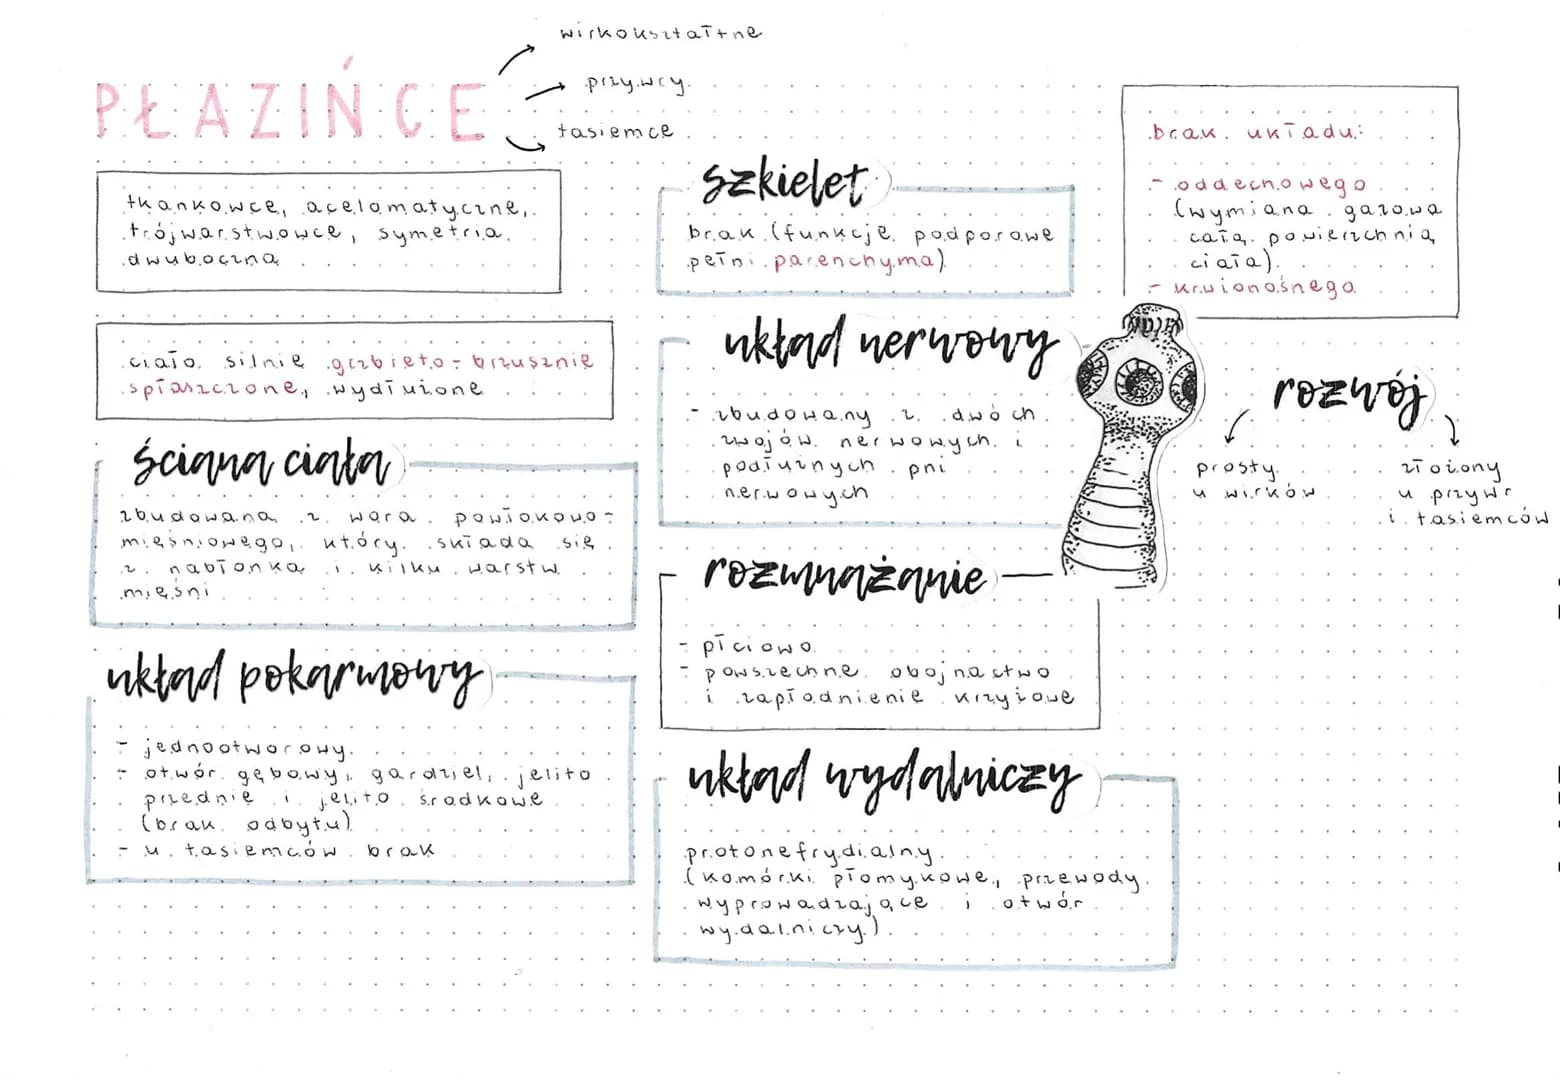 PŁAZIŃCE
wirkokształtne
przywry
tasiemce
tkankowce, acelomatyczne,
trójwarstwowce, symetria
dwuboczna
ciało silnie grzbieto-brzusznie
spłaszczone, wydłużone
ściana ciała
zbudowana z wora powłokowo-
mięśniowego, który składa się
z nabłonka i kilku warstw
mięśni
układ pokarmowy
- jednootworowy
- otwór gębowy, gardziel, jelito
przednie i jelito środkowe
(brak odbytu)
- u tasiemców brak
szkielet
brak (funkcję podporowe
pełni parenchyma)
układ nerwowy
- zbudowany z dwóch
zwojów nerwowych i
podłużnych pni
nerwowych
rozmnażanie
- płciowo
- powszechne obojnactwo
i zapłodnienie krzyżowe
układ wydalniczy
protonefrydialny
(komórki płomykowe, przewody
wyprowadzające i otwór
wydalniczy)
brak układu:
- oddechowego
(wymiana gazowa
całą powierzchnią
ciała)
- krwionośnego
rozwój
prosty
u wirków
złożony
u przywr
i tasiemców